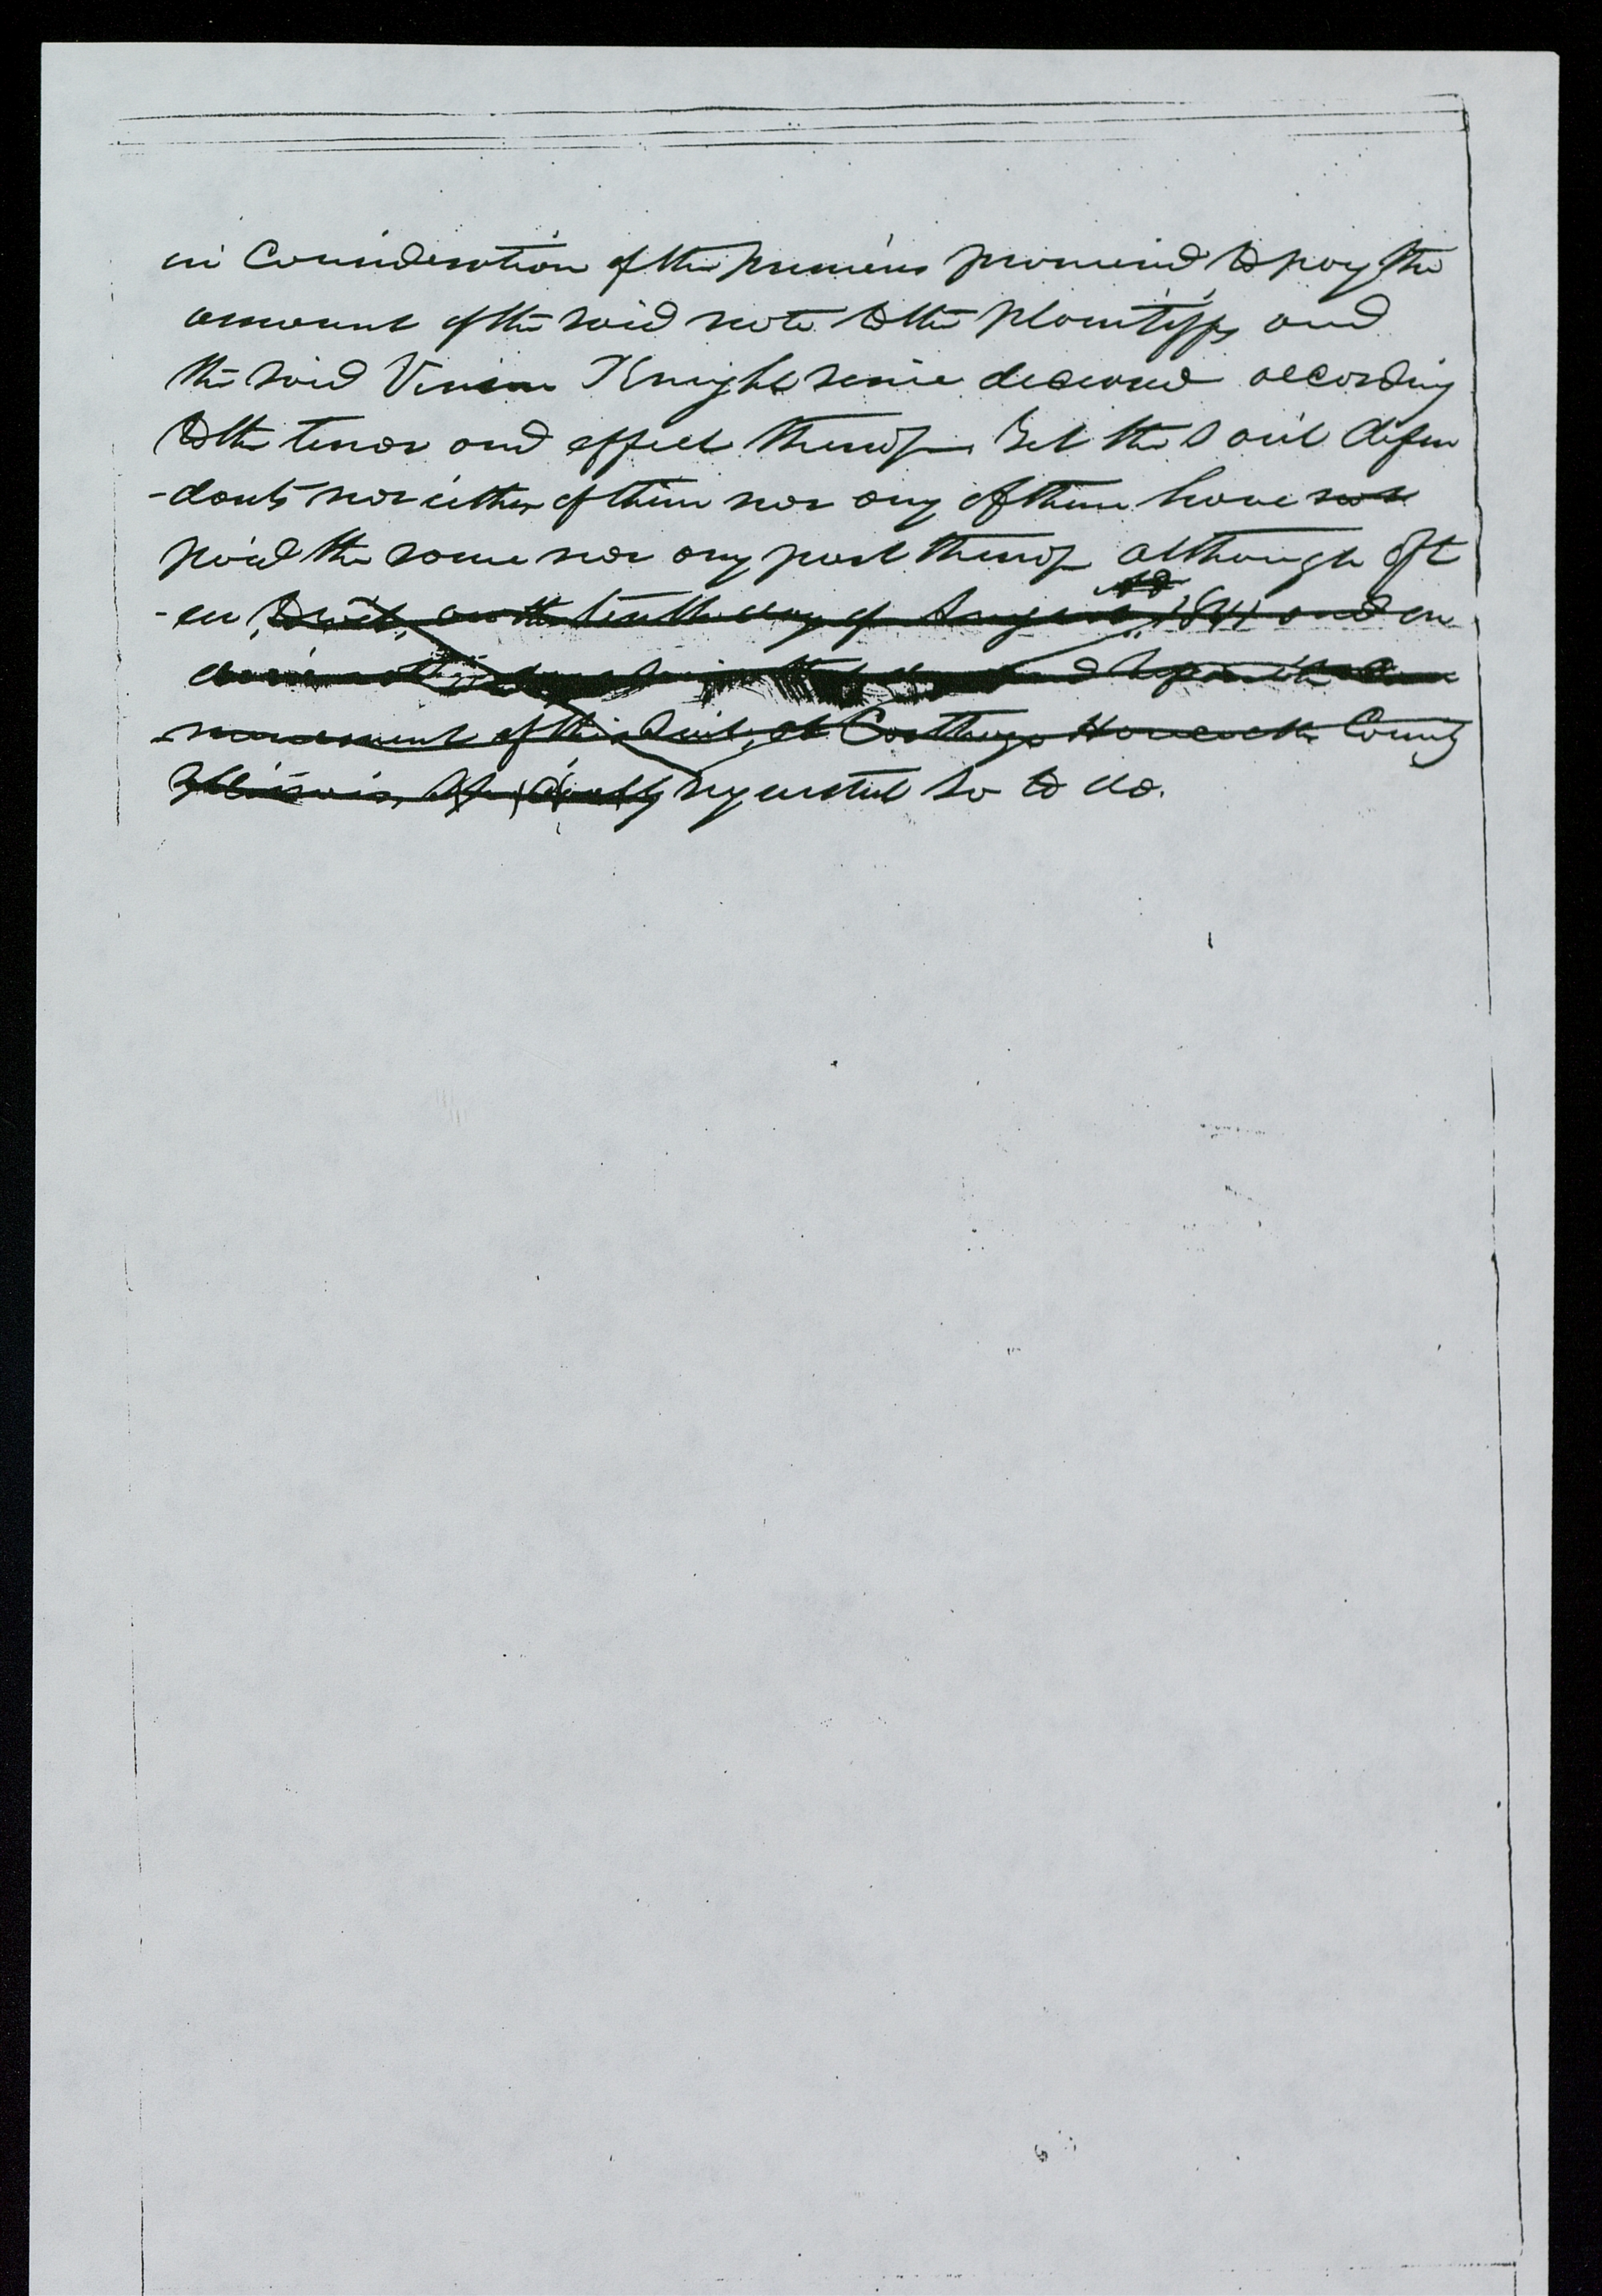 in Consideration of the premises promised to pay the
amount of the said note to the plaintiffs and
the said Vinson Knight since deceased according
to the tenor and effect thereof. Yet the Said defen
-dants nor either of them nor any of them have not
paid the same nor any part thereof although oft
-en, to wit, on the tenth day of August AD 1841 and on
and Upon the Com
-mencement of this Suit, at Carthage Hancock County
Illinois, requested So to do.